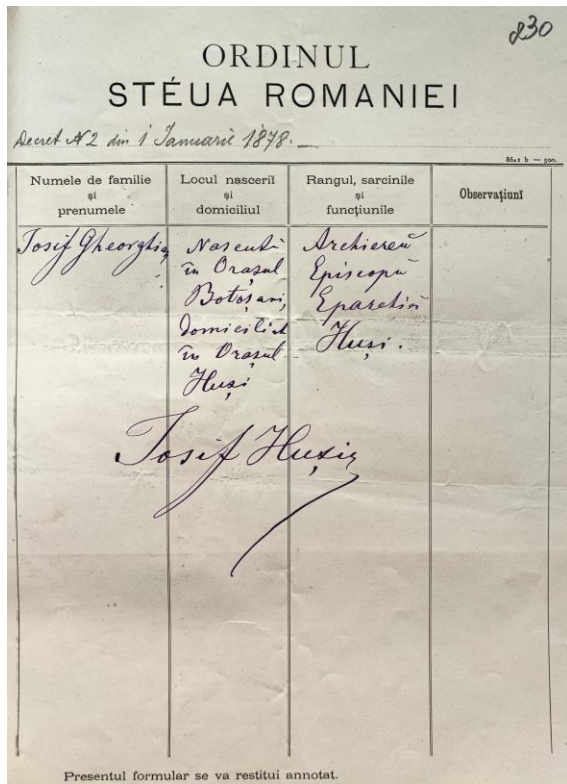 230
ORDINUL
STÉUA ROMANIEI
Decret N 2 din 1 Ianuarie 1878.
8641 b — 500.
Numele de familie
și
prenumele
Locul nascerii
și
domiciliul
Rangul, sarcinile
și
funcțiunile
Observațiuni
Iosif Gheorghia,
Nascutŭ
în Orașul
Botoșani,
domiciliat
în Orașul
Huși
Archiereŭ
Episcopŭ
Eparchiei
Huși.
Iosif Hușiu
Presentul formular se va restitui annotat.